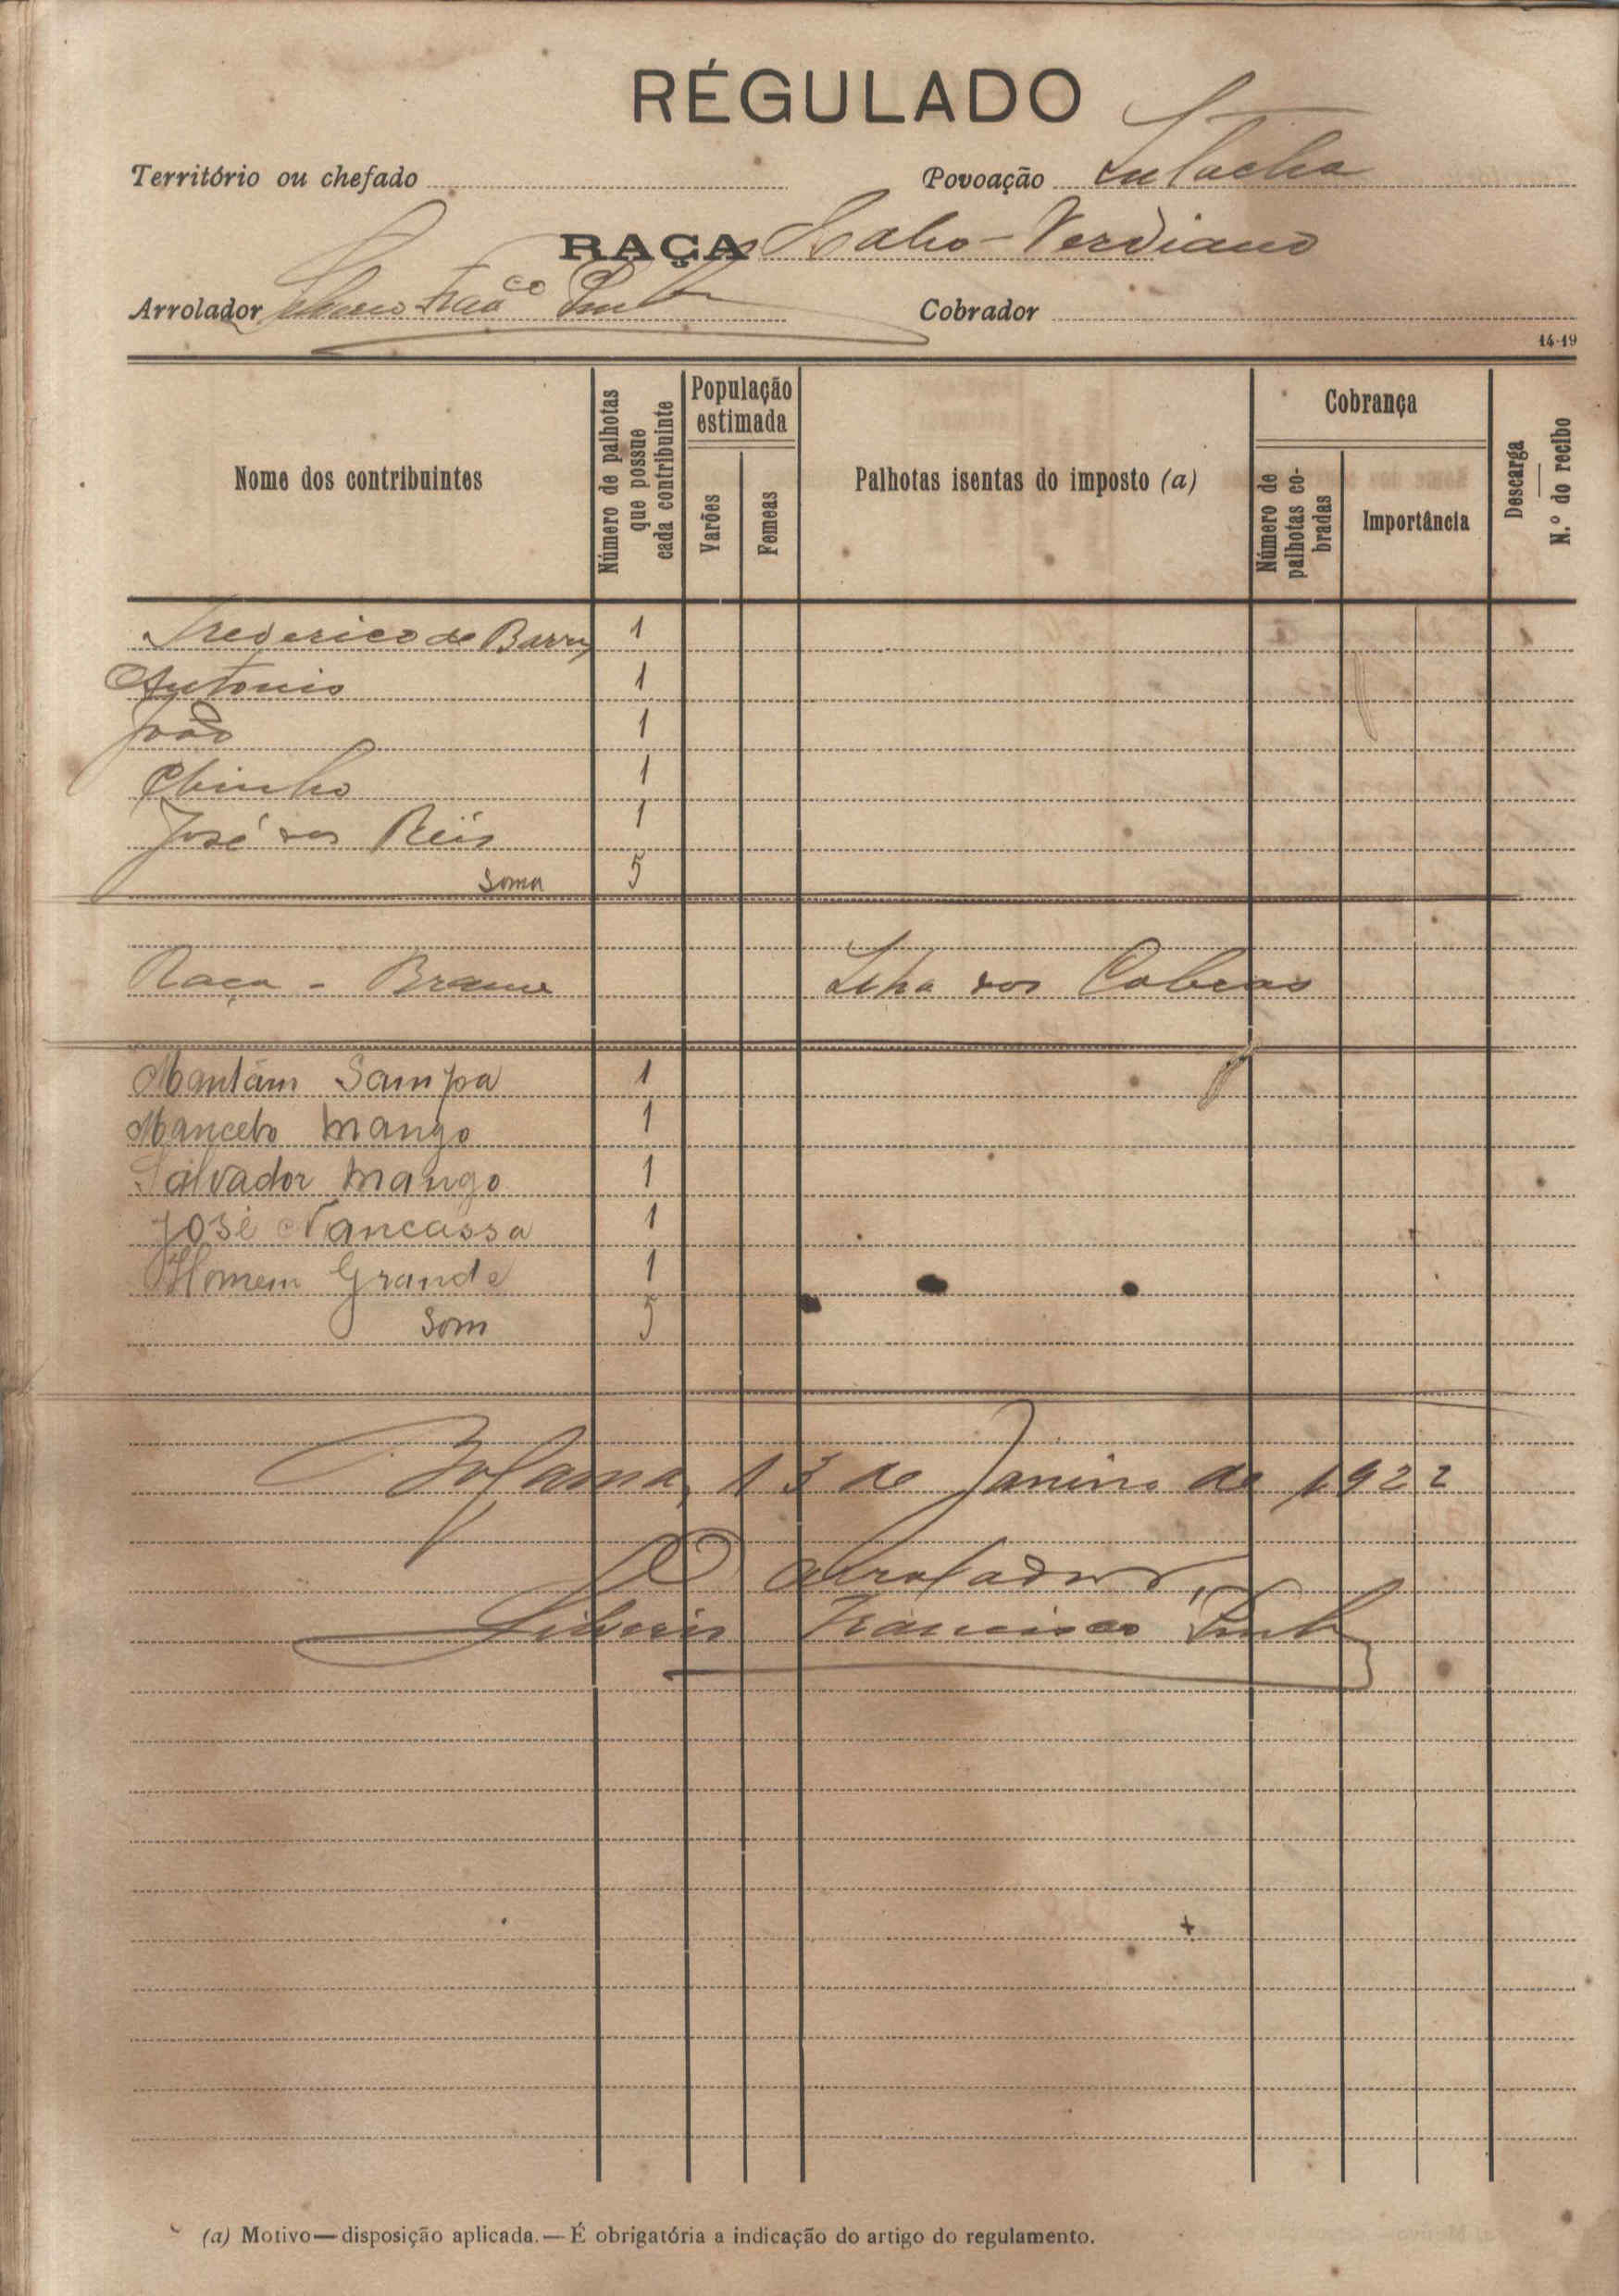 RÉGULADO
Território ou chefado Povoação
RAÇA Cabo-Verdiano
Arrolador Franco Pinto Cobrador
14-19
Nome dos contribuintes
Número de palhotas que possue cada contribuinte
População estimada
Varões
Femeas
Palhotas isentas do imposto (a)
Cobrança
Número de palhotas cobradas
Importância
Descarga
N.º do recibo
Frederico de Barros 1
Antonio 1
João 1
Chinho 1
José dos Reis 1
Soma 5
Raça - Brame Ilha das Cobras
Mantám Sampa 1
Mancebo Mango 1
Salvador Mango 1
José Nancassa 1
Homem Grande 1
Som 5
Bolama, 13 de Janeiro de 1922
O Arrolador,
Francisco Pinto
(a) Motivo—disposição aplicada.—É obrigatória a indicação do artigo do regulamento.